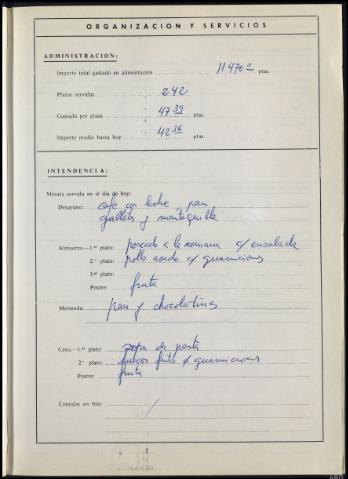 ORGANIZACION Y SERVICIOS
ADMINISTRACION:
Importe total gastado en alimentación 11.470 ptas.
Plazas servidas 242
Gastado por plaza 47'39 ptas.
Importe medio hasta hoy 42'36 ptas.
INTENDENCIA:
Minuta servida en el día de hoy:
Desayuno: café con leche, pan
galletas y mantequilla
Almuerzo.—1.er plato: pescado a la romana c/ ensalada
2.º plato: pollo asado c/ guarnicions
3.er plato:
Postre: fruta
Merienda: pan y chocolatinas
Cena.—1.er plato: sopa de pasta
2.º plato: huevos frits c/ guarnicions
Postre: fruta
Comidas en frío: /